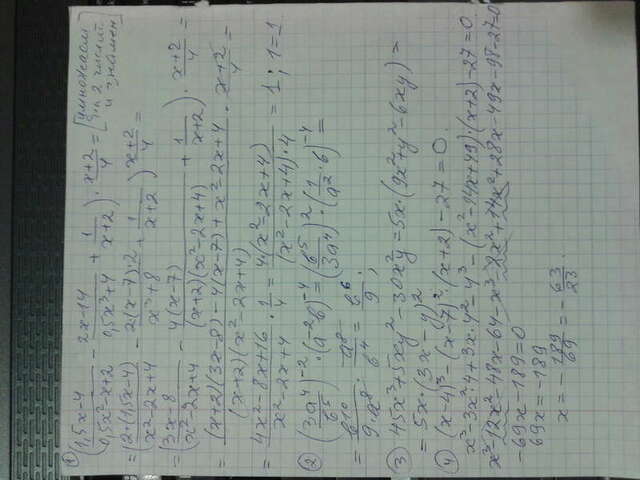 ① (1,5x-4 / 0,5x²-x+2 - 2x-14 / 0,5x³+4 + 1 / x+2) · x+2 / 4 = [умножаем
на 2 числит.
и знамен]
= (2·(1,5x-4) / x²-2x+4 - 2(x-7)·2 / x³+8 + 1 / x+2) x+2 / 4 =
= (3x-8 / x²-2x+4 - 4(x-7) / (x+2)(x²-2x+4) + 1 / x+2) · x+2 / 4 =
= (x+2)(3x-8)-4(x-7)+x²-2x+4 / (x+2)(x²-2x+4) · x+2 / 4 =
= 4x²-8x+16 / x²-2x+4 · 1 / 4 = 4(x²-2x+4) / (x²-2x+4)·4 = 1 ; 1=1
② (3a⁴ / b⁵)⁻² · (a⁻²b)⁻⁴ = (b⁵ / 3a⁴)² · (1 / a² · b)⁻⁴ =
= b¹⁰ / 9·a⁸ · a⁸ / b⁴ = b⁶ / 9 ;
③ 45x³+5xy²-30x²y = 5x·(9x²+y²-6xy) =
= 5x·(3x-y)²
④ (x-4)³-(x-7)²·(x+2)-27=0.
x³-3x²·4+3x·4²-4³-(x²-14x+49)·(x+2)-27=0
x³-12x²+48x-64-x³-2x²+14x²+28x-49x-98-27=0
-69x-189=0
69x=-189
x=-189 / 69 = -63 / 23.